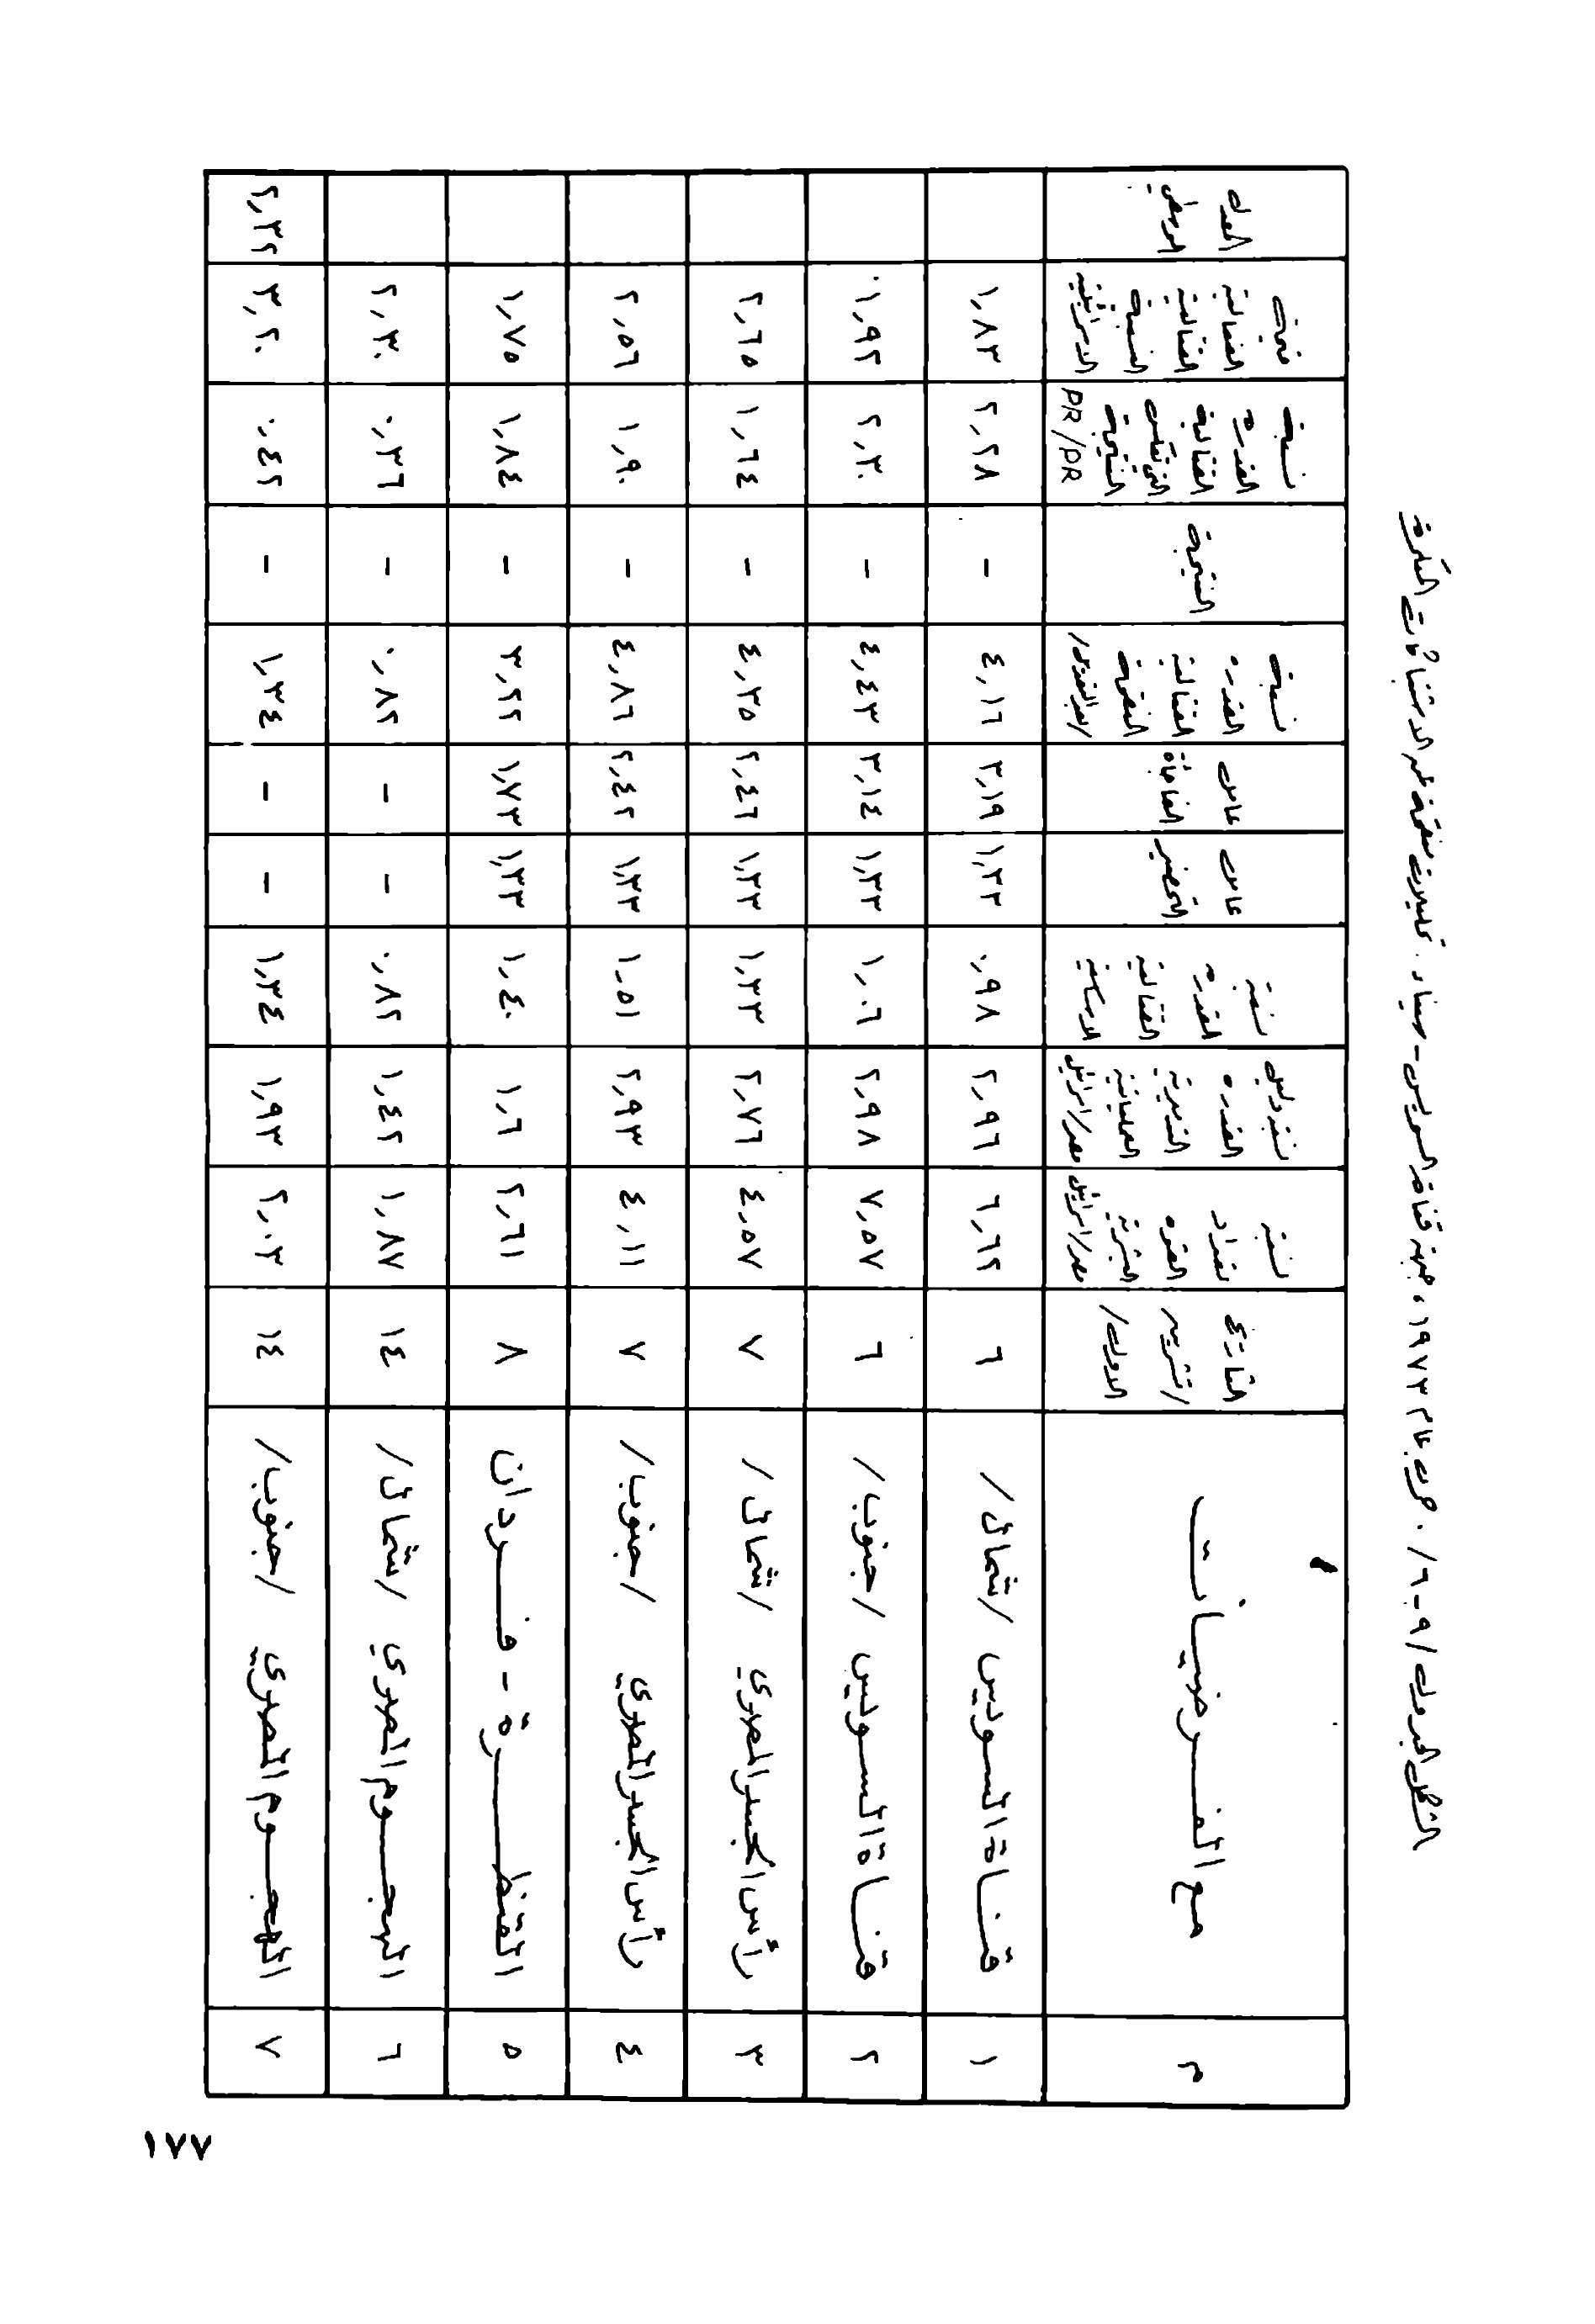 الشكل / الجدول / ٩ - ٦ / . حرب عام ١٩٧٣، جبهة قناة السويس - سيناء. تحليلات منقحة على الاشتباكات المبكرة
م | مع الفرضيات | التاريخ / تشرين الاول / | نسبة تعداد القوة البشرية مصر/اسرائيل | القدرة النارية العملياتية مصر/اسرائيل | نسبة القدرة القتالية الاساسية | عامل التحضير | عامل المفاجأة | نسبة القدرة القتالية المنقحة | النتيجة | نسبة القدرة القتالية التي تعكس النتيجة PR/PR | الفعالية القتالية النسبية الاسرائيلية | المعدل الوسطي
١ | قناة السويس / شمال / | ٦ | ٦,٦٢ | ٢,٩٦ | ٠,٩٨ | ١,٣٣ | ٣,١٩ | ٤,١٦ | - | ٢,٢٨ | ١,٨٣
٢ | قناة السويس / جنوب / | ٦ | ٧,٥٧ | ٢,٩٨ | ١,٠٦ | ١,٣٣ | ٣,١٤ | ٤,٤٣ | - | ٢,٣٠ | ١,٩٢
٣ | رأس الجسر المصري / شمال / | ٧ | ٤,٥٧ | ٢,٧٦ | ١,٣٣ | ١,٣٣ | ٢,٤٦ | ٤,٣٥ | - | ١,٦٤ | ٢,٦٥
٤ | رأس الجسر المصري / جنوب / | ٧ | ٤,١١ | ٢,٩٣ | ١,٥١ | ١,٣٣ | ٢,٤٢ | ٤,٨٦ | - | ١,٩٠ | ٢,٥٦
٥ | القنطرة - فردان | ٨ | ٢,٦١ | ١,٦ | ١,٤٠ | ١,٣٣ | ١,٧٣ | ٣,٢٢ | - | ١,٨٤ | ١,٧٥
٦ | الهجوم المصري / شمال / | ١٤ | ١,٨٧ | ١,٤٢ | ٠,٨٢ | - | - | ٠,٨٢ | - | ٠,٣٦ | ٢,٣٠
٧ | الهجوم المصري / جنوب / | ١٤ | ٢,٠٣ | ١,٩٣ | ١,٣٤ | - | - | ١,٣٤ | - | ٠,٤٢ | ٣,٢٠ | ٢,٣٢
١٧٧